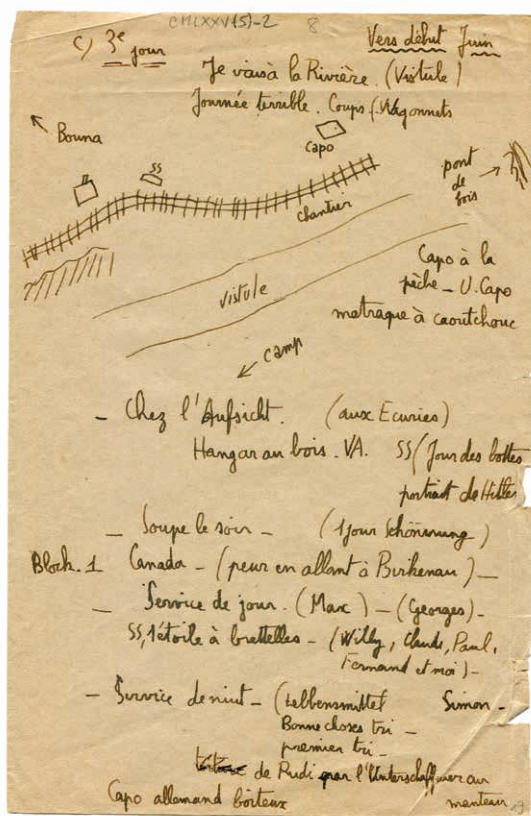 CMLXXV(5)-2 8
c) 3e jour Vers début Juin
Je vais à la Rivière. (Vistule)
Journée terrible. Coups. (Wagonnets
Bouna
Capo
SS
pont
de
bois
chantier
Capo à la
pêche - U.Capo
matraque à caoutchouc
Vistule
camp
- Chez l'Aufsicht. (aux Ecuries)
Hangar au bois. VA. SS (Jour des bottes
portrait de Hitler
- Soupe le soir - (1 jour Schönnung)
Block. 1 Canada - (peur en allant à Birkenau) -
- Service de jour. (Max) - (Georges) -
SS, 1 étoile à brettelles - (Willy, Claude, Paul,
Fernand et moi) -
- Service de nuit - (Lebbensmittel Simon -
Bonne choses tri -
premier tri -
de Rudi par l'Unterschaffuerer au
Capo allemand boiteux manteau